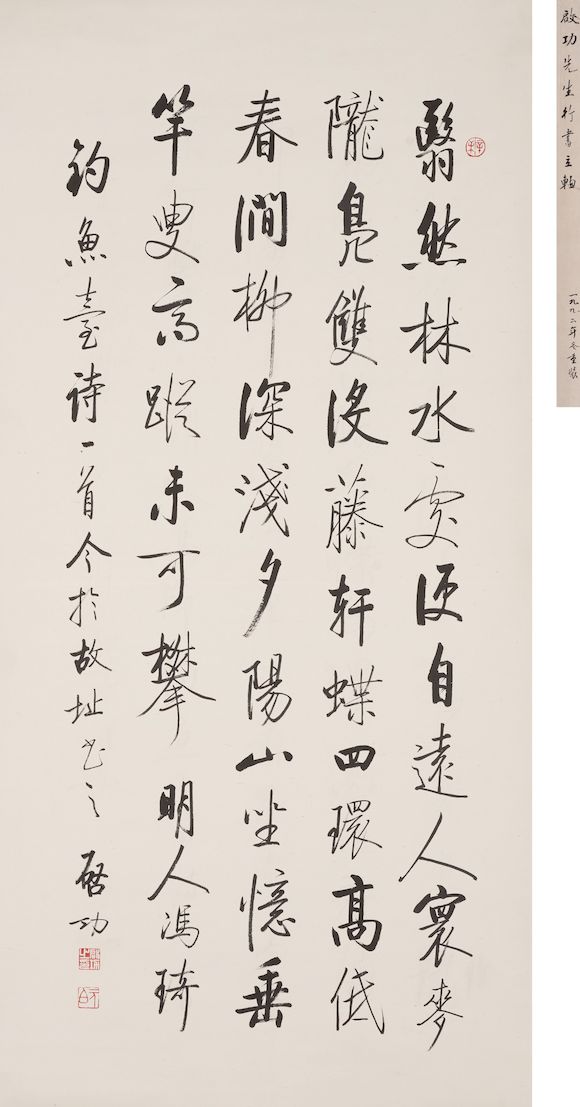 啟功先生行書立軸
一九九二年冬重裝
翳然林水處便自遠人寰麥
隴鳧雙没藤軒蝶四環高低
春澗柳深淺夕陽山坐憶垂
竿叟高蹤未可攀 明人馮琦
釣魚臺詩一首今於故址書之 啟功